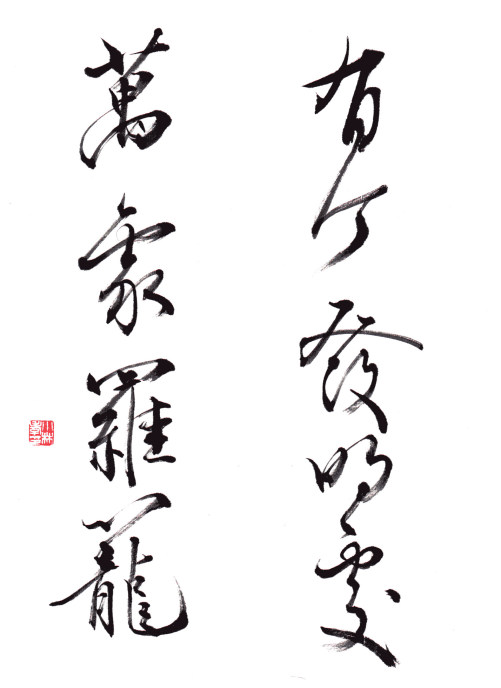 有个發明處
萬象羅籠